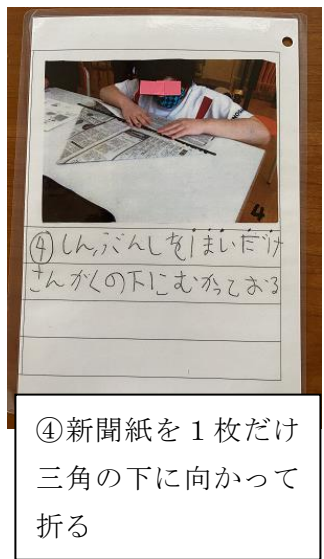 4
④しんぶんしを1まいだけ
さんかくの下にむかっておる
④新聞紙を１枚だけ
三角の下に向かって
折る